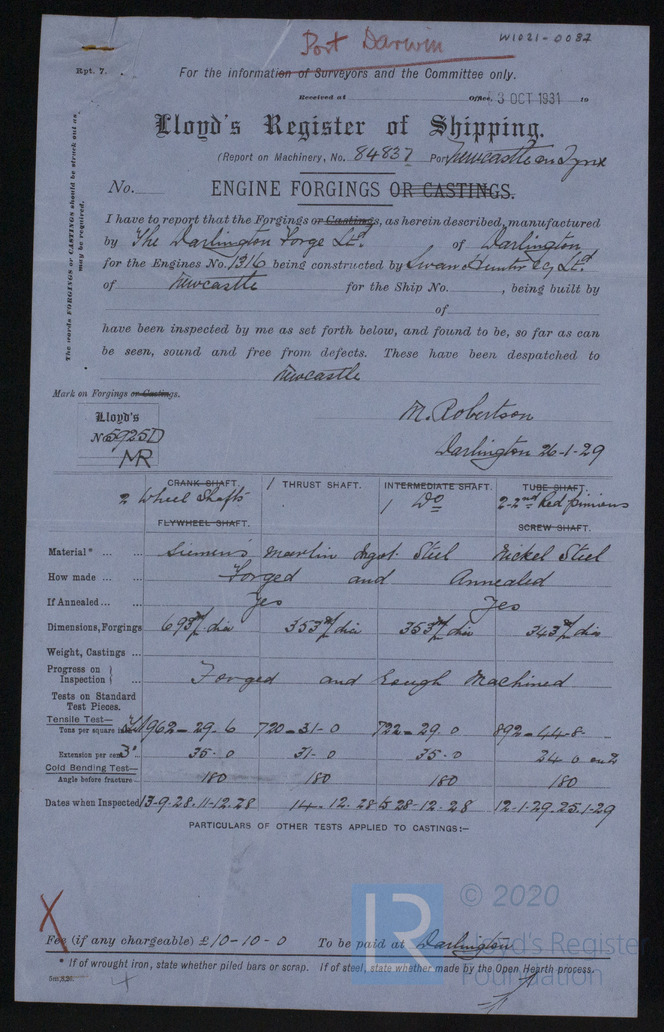 Port Darwin
W1021-0082
Rpt. 7.
For the information of Surveyors and the Committee only.
Received at Office, 3 OCT 1931 19
Lloyd's Register of Shipping.
(Report on Machinery, No. 84837 Port Newcastle on Tyne
No.
ENGINE FORGINGS OR CASTINGS.
The words FORGINGS or CASTINGS should be struck out as may be required.
I have to report that the Forgings or Castings, as herein described, manufactured
by The Darlington Forge Ltd. of Darlington
for the Engines No. 1316 being constructed by Swan Hunter Ltd.
of Newcastle for the Ship No. , being built by
of
have been inspected by me as set forth below, and found to be, so far as can
be seen, sound and free from defects. These have been despatched to
Newcastle
Mark on Forgings or Castings.
Lloyd's
No 5925D
MR
M. Robertson
Darlington 26-1-29
CRANK SHAFT. 1 THRUST SHAFT. INTERMEDIATE SHAFT. TUBE SHAFT.
2 Wheel Shafts 1 Do 2-2nd Red pinions
FLYWHEEL SHAFT. SCREW SHAFT.
Material* ... ... Siemens Martin Ingot Steel Nickel Steel
How made ... ... Forged and Annealed
If Annealed ... ... Yes Yes
Dimensions, Forgings 693 m/m dia 353 m/m dia 353 m/m dia 343 m/m dia
Weight, Castings ...
Progress on
Inspection } ... Forged and Rough Machined
Tests on Standard
Test Pieces.
Tensile Test—
Tons per square 962-29.6 720-31-0 722-29.0 892-44-8-
Extension per cent 3" 35.0 31-0 35.0 24.0 on 2
Cold Bending Test—
Angle before fracture 180 180 180 180
Dates when Inspected 13-9-28. 11-12.28 14-12.28 28-12-28 12-1-29. 25.1-29
PARTICULARS OF OTHER TESTS APPLIED TO CASTINGS:—
© 2020
LR
Lloyd's Register
Foundation
Fee (if any chargeable) £10-10-0 To be paid at Darlington
* If of wrought iron, state whether piled bars or scrap. If of steel, state whether made by the Open Hearth process.